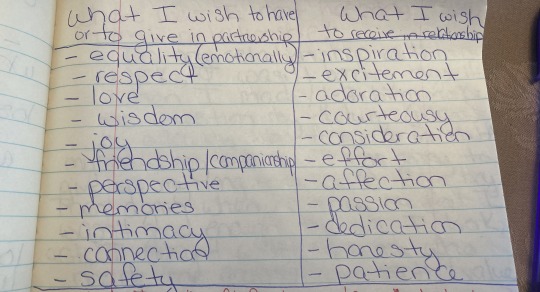 What I wish to have
or to give in partnership
- equality (emotionally)
- respect
- love
- wisdom
- joy
- friendship/companionship
- perspective
- memories
- intimacy
- connection
- safety
What I wish
to receive in relationship
- inspiration
- excitement
- adoration
- courteousy
- consideration
- effort
- affection
- passion
- dedication
- honesty
- patience